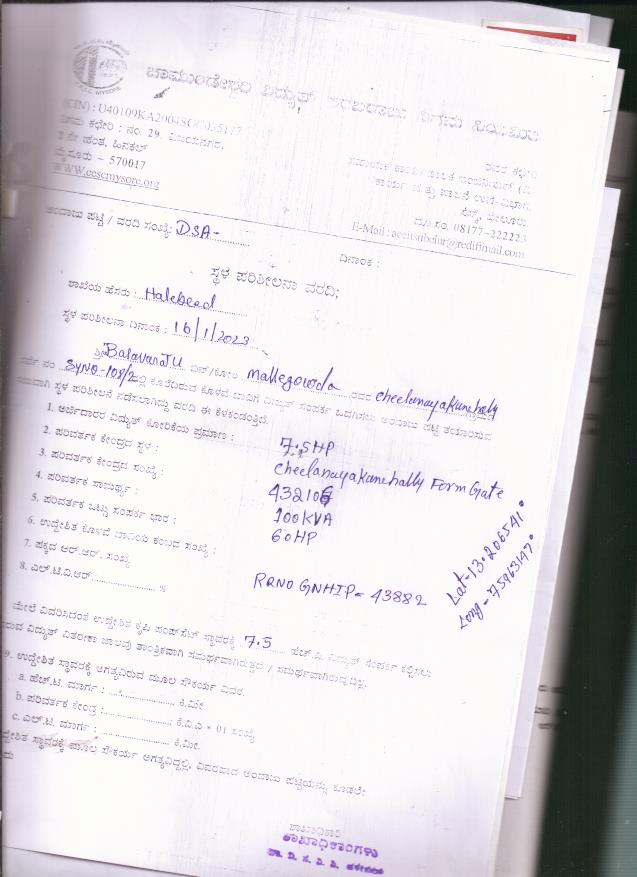 C.E.S.C. MYSORE
ಚಾಮುಂಡೇಶ್ವರಿ ವಿದ್ಯುತ್ ಸರಬರಾಜು ನಿಗಮ ನಿಯಮಿತ
(CIN) : U40109KA2004SGC035177
ನಿಗಮ ಕಛೇರಿ : ನಂ. 29, ವಿಜಯನಗರ,
2 ನೇ ಹಂತ, ಹಿನಕಲ್
ಮೈಸೂರು - 570017
WWW.cescmysore.org
ರವರ ಕಛೇರಿ
ಕಾರ್ಯ ಮತ್ತು ಪಾಲನೆ ಉಪ-ವಿಭಾಗ
ಸೆಸ್ಕ್, ಬೇಲೂರು
ದೂ.ಸಂ. 08177-222223
E-Mail : aeeitsubelur@rediffmail.com
ಅಂದಾಜು ಪಟ್ಟಿ / ವರದಿ ಸಂಖ್ಯೆ: DSA-
ದಿನಾಂಕ :
ಸ್ಥಳ ಪರಿಶೀಲನಾ ವರದಿ;
ಶಾಖೆಯ ಹೆಸರು : Halebeed
ಸ್ಥಳ ಪರಿಶೀಲನಾ ದಿನಾಂಕ : 16/1/2023
ಶ್ರೀ BalavaraJU ಬಿನ್/ಕೋಂ Mallegowda ರವರ Cheelanayakanahally
ಸರ್ವೆ ನಂ SYNO-108/2 ಲ್ಲಿ ಕೊರೆದಿರುವ ಕೊಳವೆ ಬಾವಿಗೆ ವಿದ್ಯುತ್ ಸಂಪರ್ಕ ಒದಗಿಸಲು ಅಂದಾಜು ಪಟ್ಟಿ ತಯಾರಿಸುವ
ಸಲುವಾಗಿ ಸ್ಥಳ ಪರಿಶೀಲನೆ ನಡೆಸಲಾಗಿದ್ದು ವರದಿ ಈ ಕೆಳಕಂಡಂತಿದೆ.
1. ಅರ್ಜಿದಾರರ ವಿದ್ಯುತ್ ಕೋರಿಕೆಯ ಪ್ರಮಾಣ : 7.5HP
2. ಪರಿವರ್ತಕ ಕೇಂದ್ರದ ಸ್ಥಳ : Cheelanayakanehally Form Gate
3. ಪರಿವರ್ತಕ ಕೇಂದ್ರದ ಸಂಖ್ಯೆ : 43210
4. ಪರಿವರ್ತಕ ಸಾಮರ್ಥ್ಯ : 100KVA
5. ಪರಿವರ್ತಕ ಒಟ್ಟು ಸಂಪರ್ಕ ಭಾರ : 60HP
6. ಉದ್ದೇಶಿತ ಕೊಳವೆ ಬಾವಿಯ ಕಂಬದ ಸಂಖ್ಯೆ :
7. ಪಕ್ಕದ ಆರ್.ಆರ್. ಸಂಖ್ಯೆ RRNO GNHIP- 43882
8. ಎಲ್.ಟಿ.ವಿ.ಆರ್. %
Lat-13.206541°
Long-75.963147°
ಮೇಲೆ ವಿವರಿಸಿದಂತೆ ಉದ್ದೇಶಿತ ಕೃಷಿ ಪಂಪ್‌ಸೆಟ್ ಸ್ಥಾವರಕ್ಕೆ 7.5 ಹೆಚ್.ಪಿ. ವಿದ್ಯುತ್ ಸಂಪರ್ಕ ಕಲ್ಪಿಸಲು
ಇರುವ ವಿದ್ಯುತ್ ವಿತರಣಾ ಜಾಲವು ತಾಂತ್ರಿಕವಾಗಿ ಸಮರ್ಥವಾಗಿರುತ್ತದೆ / ಸಮರ್ಥವಾಗಿರುವುದಿಲ್ಲ.
9. ಉದ್ದೇಶಿತ ಸ್ಥಾವರಕ್ಕೆ ಅಗತ್ಯವಿರುವ ಮೂಲ ಸೌಕರ್ಯ ವಿವರ.
a. ಹೆಚ್.ಟಿ. ಮಾರ್ಗ : ಕಿ.ಮೀ
b. ಪರಿವರ್ತಕ ಕೇಂದ್ರ : ಕೆ.ವಿ.ಎ × 01 ಸಂಖ್ಯೆ
c. ಎಲ್.ಟಿ. ಮಾರ್ಗ : ಕಿ.ಮೀ.
ಉದ್ದೇಶಿತ ಸ್ಥಾವರಕ್ಕೆ ಮೂಲ ಸೌಕರ್ಯ ಅಗತ್ಯವಿದ್ದಲ್ಲಿ, ವಿವರವಾದ ಅಂದಾಜು ಪಟ್ಟಿಯನ್ನು ಕೂಡಲೇ
ಶಾಖಾಧಿಕಾರಿ
ಶಾಖಾಧಿಕಾರಿಗಳು